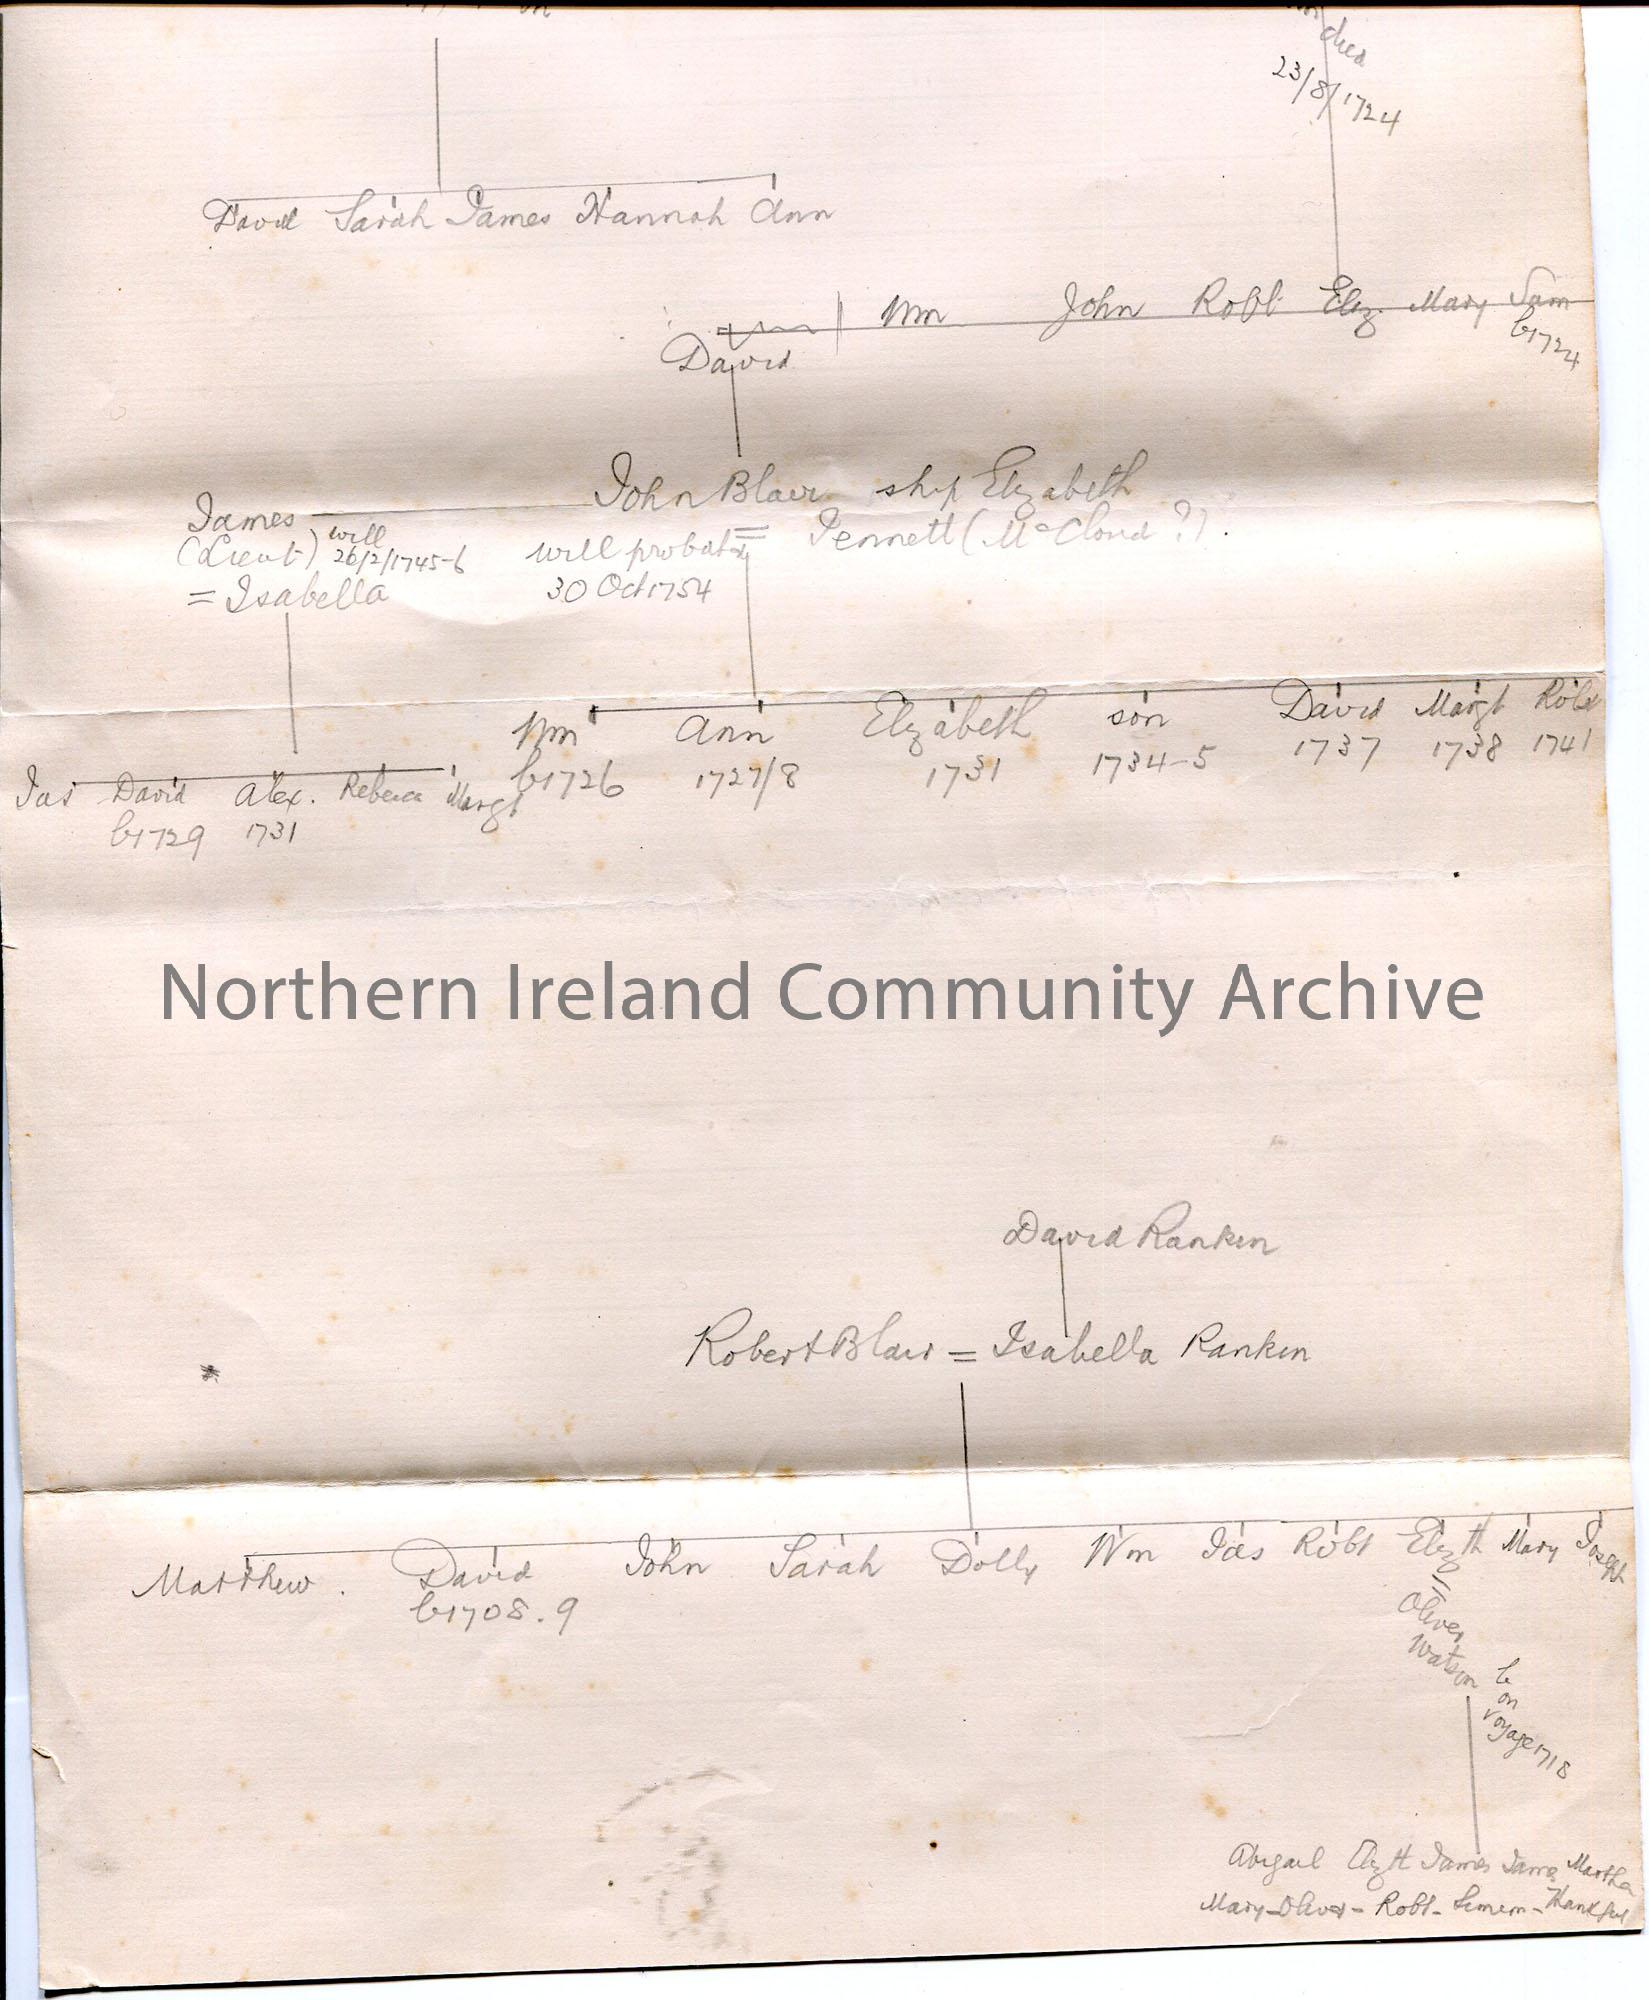 died
23/8/1724
David Sarah James Hannah Ann
Wm John Robt Eliz. Mary Sam
b1724
David
John Blair ship Elizabeth
= Jennett (McCloud?).
James
(Lieut) will
26/2/1745-6
= Isabella
will probate
30 Oct 1754
Wm Ann Elizabeth son David Margt Robt
b1726 1727/8 1731 1734-5 1737 1738 1741
Jas David Alex. Rebecca Margt
b1729 1731
Northern Ireland Community Archive
David Rankin
Robert Blair = Isabella Rankin
Matthew. David John Sarah Dolly Wm Jas Robt Elizth Mary Joseph
b1708.9
=
Oliver
Watson
b
on
voyage 1718
Abigail Elizth James Jane Martha
Mary-Oliver-Robt-Simeon-Thankful